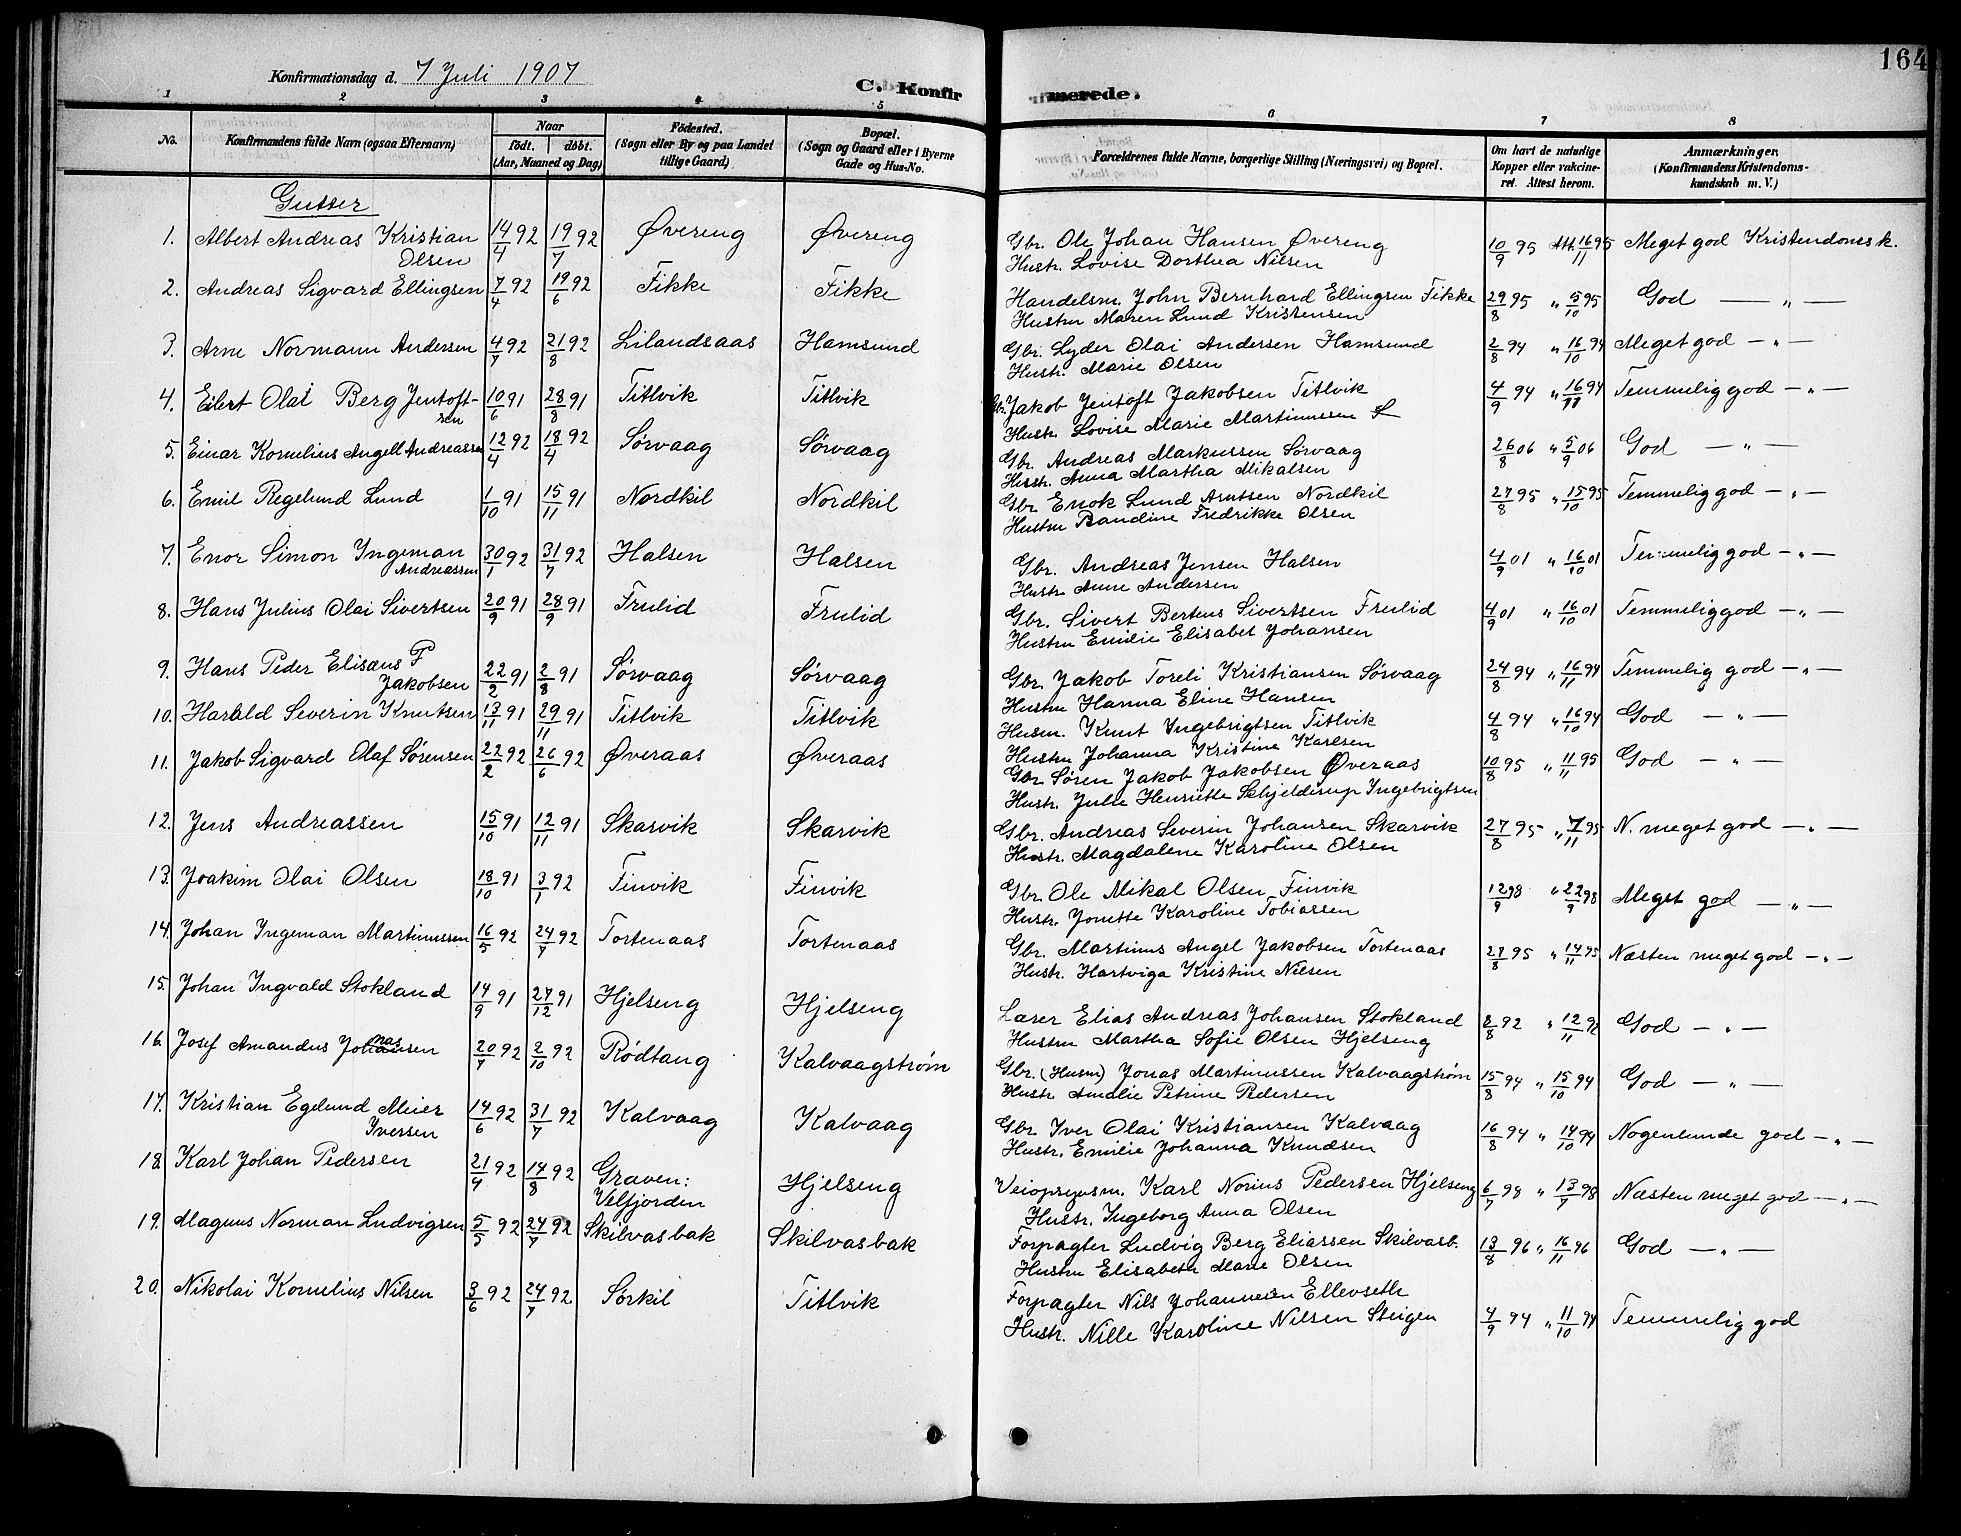 164
Konfirmationsdag d. 7 Juli 1907
C. Konfirmerede.
1 2 3 4 5 6 7 8
No.
Konfirmandens fulde Navn (ogsaa Efternavn)
Naar
födt. döbt.
(Aar, Maaned og Dag)
Födested.
(Sogn eller By og paa Landet
tillige Gaard)
Bopæl.
(Sogn og Gaard eller i Byerne
Gade og Hus-No.
Forældrenes fulde Navne, borgerlige Stilling (Næringsvei) og Bopæl.
Om havt de naturlige
Kopper eller vakcine-
ret. Attest herom.
Anmærkninger.
(Konfirmandens Kristendoms-
kundskab m. V.)
Gutter
1. Albert Andreas Kristian Olsen 14/4 92 19/7 92 Øvereng Øvereng
Gbr. Ole Johan Hansen Øvereng
Hustr. Lovise Dorthea Nilsen
10/9 95 Att. 16/11 95 Meget god Kristendomsk.
2. Andreas Sigvard Ellingsen 7/4 92 19/6 92 Fikke Fikke
Handelsm. John Bernhard Ellingsen Fikke
Hustru Maren Lund Kristensen
29/8 95 " 5/10 95 God — " —
3. Arne Normann Andersen 4/7 92 21/8 92 Lilandsaas Hamsund
Gbr. Lyder Olai Andersen Hamsund
Hustr. Marie Olsen
2/8 94 " 16/10 94 Meget god — " —
4. Eilert Olai Berg Jentoft-
sen 10/6 91 28/8 91 Titlvik Titlvik
Gbr. Jakob Jentoft Jakobsen Titlvik
Hustr. Lovise Marie Martinussen
4/9 94 " 16/11 94 Temmelig god — " —
5. Einar Kornelius Angell Andreassen 12/4 92 18/4 92 Sørvaag Sørvaag
Gbr. Andreas Markussen Sørvaag
Hustr. Anna Martha Mikalsen
26/8 06 " 5/9 06 God — " —
6. Emil Regelund Lund 1/10 91 15/11 91 Nordkil Nordkil
Gbr. Enok Lund Arntsen Nordkil
Hustru Bandine Fredrikke Olsen
27/8 95 " 15/10 95 Temmelig god — " —
7. Enor Simon Ingeman
Andreassen 30/1 92 31/7 92 Halsen Halsen
Gbr. Andreas Jensen Halsen
Hustr. Anne Andersen
4/9 01 " 16/10 01 Temmelig god — " —
8. Hans Julius Olai Sivertsen 20/9 91 28/9 91 Frulid Frulid
Gbr. Sivert Bertens Sivertsen Frulid
Hustru Emilie Elisabet Johansen
4/9 01 " 16/10 01 Temmelig god — " —
9. Hans Peder Elisæus P
Jakobsen 22/2 91 2/8 91 Sørvaag Sørvaag
Gbr. Jakob Toreli Kristiansen Sørvaag
Hustru Hanna Eline Hansen
24/8 94 " 16/11 94 Temmelig god — " —
10. Harald Severin Knutsen 13/11 91 29/11 91 Titlvik Titlvik
Husm. Knut Ingebrigtsen Titlvik
Hustru Johanna Kristine Karlsen
4/8 94 " 16/10 94 God — " —
11. Jakob Sigvard Olaf Sørensen 22/2 92 26/6 92 Øveraas Øveraas
Gbr Søren Jakob Jakobsen Øveraas
Hustr. Julie Henriette Schjelderup Ingebrigtsen
10/8 95 " 11/11 95 God — " —
12. Jens Andreassen 15/10 91 12/11 91 Skarvik Skarvik
Gbr. Andreas Severin Johansen Skarvik
Hustr. Magdalene Karoline Olsen
27/8 95 " 7/11 95 N. meget god — " —
13. Joakim Olai Olsen 18/10 91 3/1 92 Finvik Finvik
Gbr. Ole Mikal Olsen Finvik
Hustr. Jonette Karoline Tobiassen
12/9 98 " 22/9 98 Meget god — " —
14. Johan Ingeman Martinussen 16/5 92 24/7 92 Tortenaas Tortenaas
Gbr. Martinus Angel Jakobsen Tortenaas
Hustr. Hartviga Kristine Nilsen
28/8 95 " 14/11 95 Næsten meget god — " —
15. Johan Ingvald Stokland 14/9 91 27/12 91 Hjelseng Hjelseng
Lærer Elias Andreas Johansen Stokland
Hustru Martha Sofie Olsen Hjelseng
8/8 92 " 12/11 92 God — " —
16. Josef Amandus Jonassen 20/7 92 2/10 92 Rødtang Kalvaagstrøm
Gbr. (Husm) Jonas Martinussen Kalvaagstrøm
Hustr Amalie Petrine Pedersen
15/8 94 " 15/10 94 God — " —
17. Kristian Egelund Meier
Iversen 14/6 92 31/7 92 Kalvaag Kalvaag
Gbr Iver Olai Kristiansen Kalvaag
Hustr. Emilie Johanna Knudsen
16/8 94 " 14/10 94 Nogenlunde god — " —
18. Karl Johan Pedersen 21/4 92 14/8 92 Graven:
Velfjorden Hjelseng
Veiopsynsm. Karl Norius Pedersen Hjelseng
Hustr. Ingeborg Anna Olsen
6/7 98 " 13/7 98 Næsten meget god — " —
19. Magnus Norman Ludvigsen 5/5 92 24/7 92 Skilvasbak Skilvasbak
Forpagter Ludvig Berg Eliassen Skilvasb.
Hustru Elisabeth Marie Olsen
13/8 96 " 16/11 96 God — " —
20. Nikolai Kornelius Nilsen 3/6 92 24/7 92 Sørkil Titlvik
Forpagter Nils Johannesen Ellevseth
Hustr. Nille Karoline Nilsen Steigen
4/9 94 " 11/10 94 Temmelig god